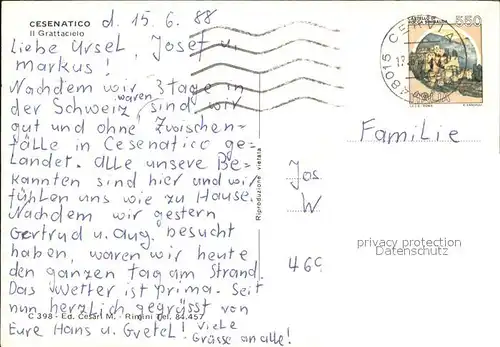 CESENATICO
Il Grattacielo
d. 15.6.88
Liebe Ursel, Josef u.
Markus!
Nachdem wir 3 Tage in
der Schweiz waren sind wir
gut und ohne Zwischen-
fälle in Cesenatico ge-
Landet. Alle unsere Be-
kannten sind hier und wir
fühlen uns wie zu Hause.
Nachdem wir gestern
Gertrud u. Aug. besucht
haben, waren wir heute
den ganzen Tag am Strand.
Das Wetter ist Prima. Seit
nun herzlich gegrüsst von
Eure Hans u. Gretel! Viele
Grüsse an alle!
C 398 - Ed. Cesari M. - Rimini Tel. 84.457
Riproduzione vietata
550
48015 CERVIA
Familie
Jos
W
469
privacy protection
Datenschutz